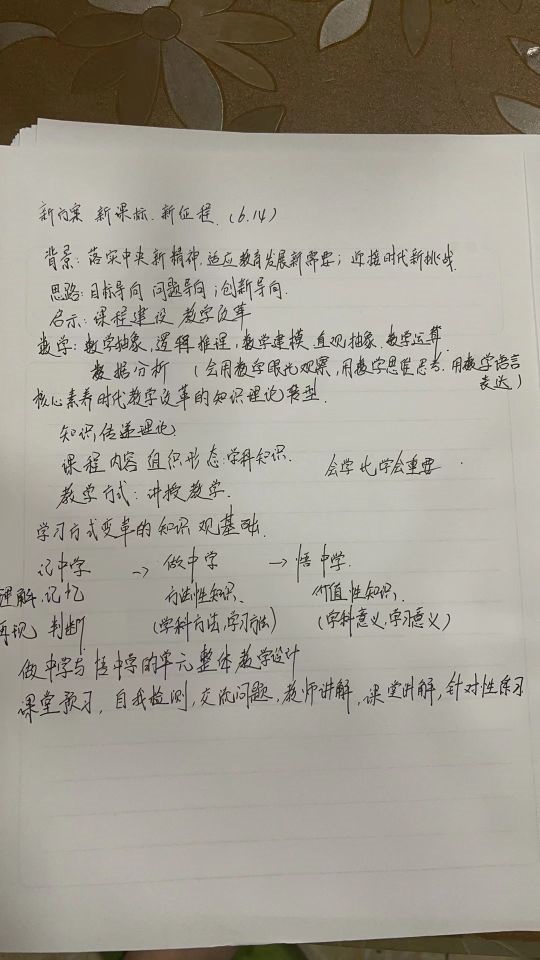 新方案 新课标.新征程.(6.14)
背景:落实中央新精神,适应教育发展新需要;迎接时代新挑战.
思路:目标导向 问题导向;创新导向.
启示:课程建设 教学改革
数学:数学抽象,逻辑推理,数学建模 直观抽象,数学运算
数据分析 (会用数学眼光观察,用数学思维思考.用数学语言
表达)
核心素养时代教学改革的知识理论转型.
知识传递理论
课程内容组织形态:学科知识. 会学比学会重要.
教学方式:讲授教学.
学习方式变革的知识观基础.
记中学 → 做中学 → 悟中学.
理解.记忆 方法性知识. 价值性知识.
再现 判断 (学科方法,学习方法) (学科意义,学习意义)
做中学与悟中学的单元整体教学设计
课堂预习,自我检测,交流问题,教师讲解,课堂讲解,针对性练习